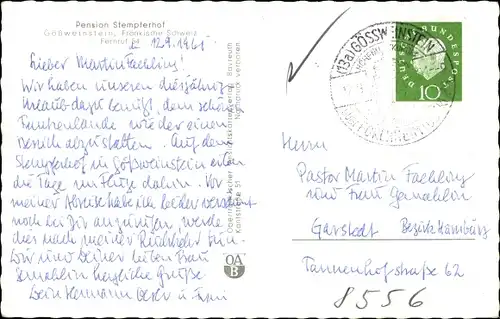 Pension Stempferhof
Gößweinstein, Fränkische Schweiz
Fernruf 64
12.9.1961
Lieber Martin Faehling!
Wir haben unseren diesjährigen
Urlaub dazu benutzt, dem schönen
Frankenlande wieder einen
Besuch abzustatten. Auf dem
Stempferhof in Gößweinstein eilen
die Tage im Fluge dahin. Vor
meiner Abreise habe ich leider versäumt
noch bei Dir anzurufen, werde
dies nach meiner Rückkehr tun.
Dir und Deiner lieben Frau
Gemahlin herzliche Grüße
Dein Hermann u. Frau
Oberfränkischer Ansichtskartenverlag Bayreuth
Karlstraße 51 Nachdruck verboten
OA
B
(13a) GÖSSWEINSTEIN
DEUTSCHE BUNDESPOST
10
Herrn
Pastor Martin Faehling
und Frau Gemahlin
Garstedt Bezirk Hamburg
Tannenhofstraße 62
8556